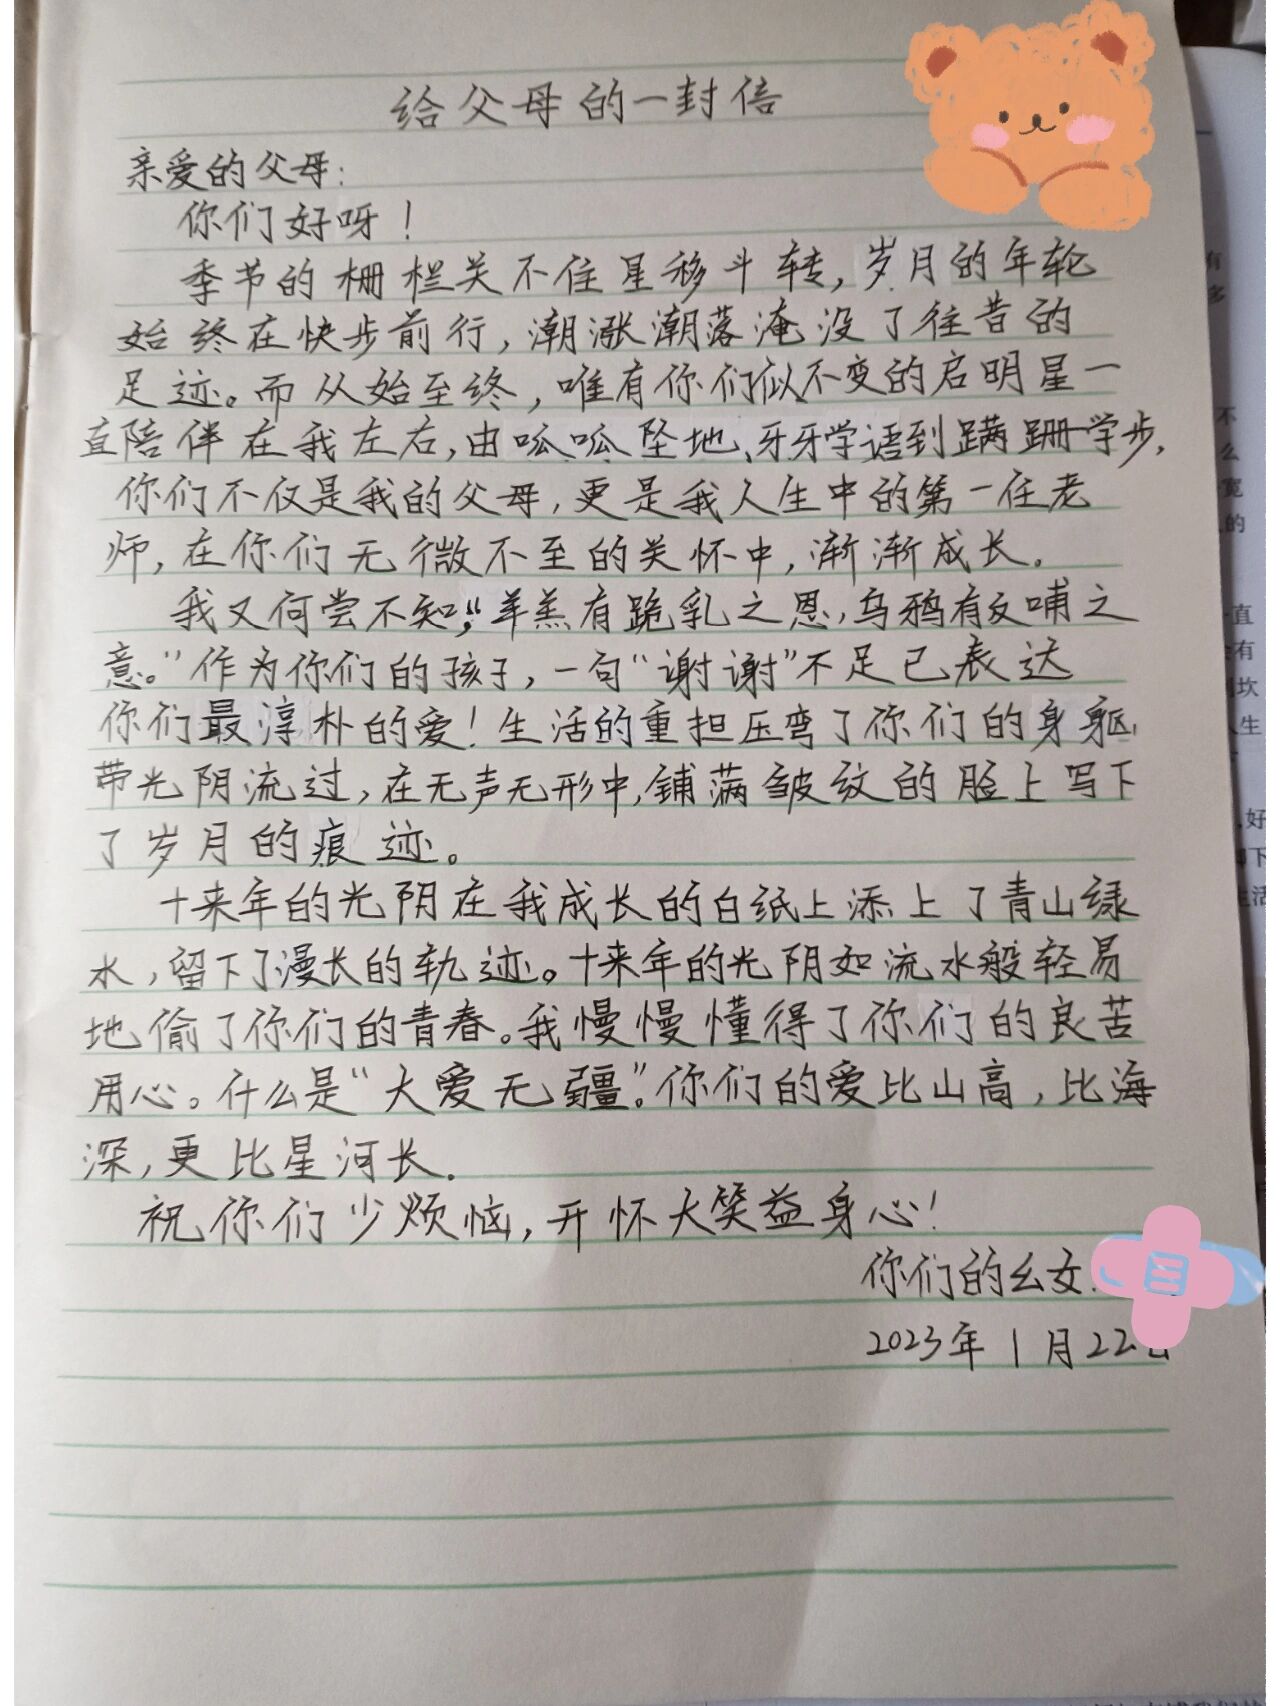 给父母的一封信
亲爱的父母：
你们好呀！
季节的栅栏关不住星移斗转，岁月的年轮
始终在快步前行，潮涨潮落淹没了往昔的
足迹。而从始至终，唯有你们似不变的启明星一
直陪伴在我左右，由呱呱坠地、牙牙学语到蹒跚学步，
你们不仅是我的父母，更是我人生中的第一任老
师，在你们无微不至的关怀中，渐渐成长。
我又何尝不知，“羊羔有跪乳之恩，乌鸦有反哺之
意。”作为你们的孩子，一句“谢谢”不足已表达
你们最淳朴的爱！生活的重担压弯了你们的身躯，
带光阴流过，在无声无形中，铺满皱纹的脸上写下
了岁月的痕迹。
十来年的光阴在我成长的白纸上添上了青山绿
水，留下了漫长的轨迹。十来年的光阴如流水般轻易
地偷了你们的青春。我慢慢懂得了你们的良苦
用心。什么是“大爱无疆”。你们的爱比山高，比海
深，更比星河长。
祝你们少烦恼，开怀大笑益身心！
你们的幺女
2023年1月22日
有
多
不
么
宽
的
一直
有
坎
人生
好
脚下
生活